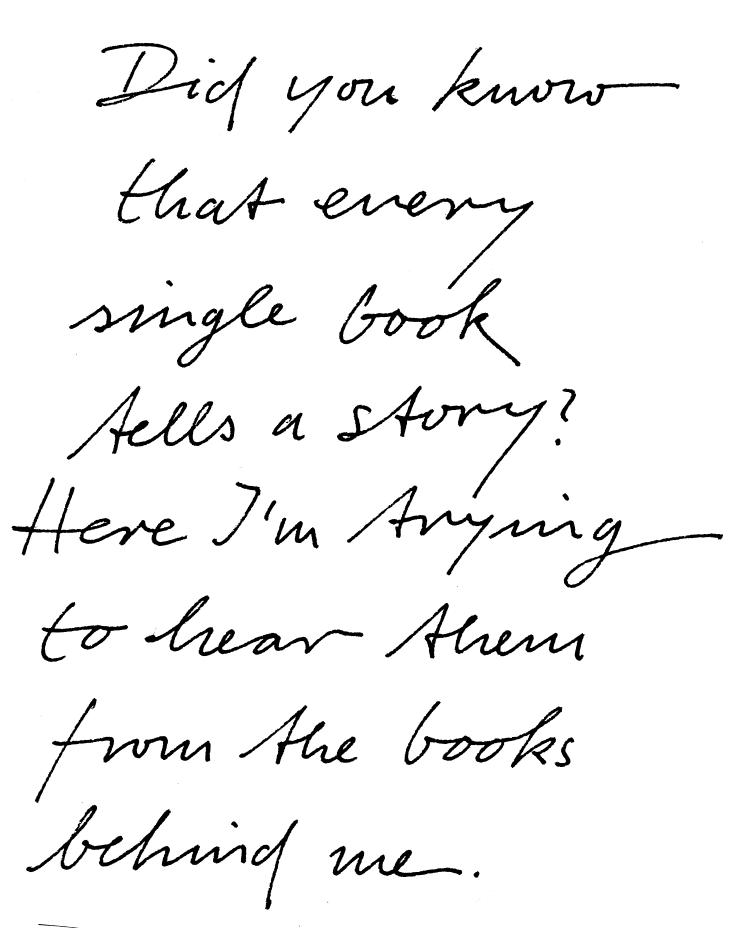 Did you know
that every
single book
tells a story?
Here I'm trying
to hear them
from the books
behind me.